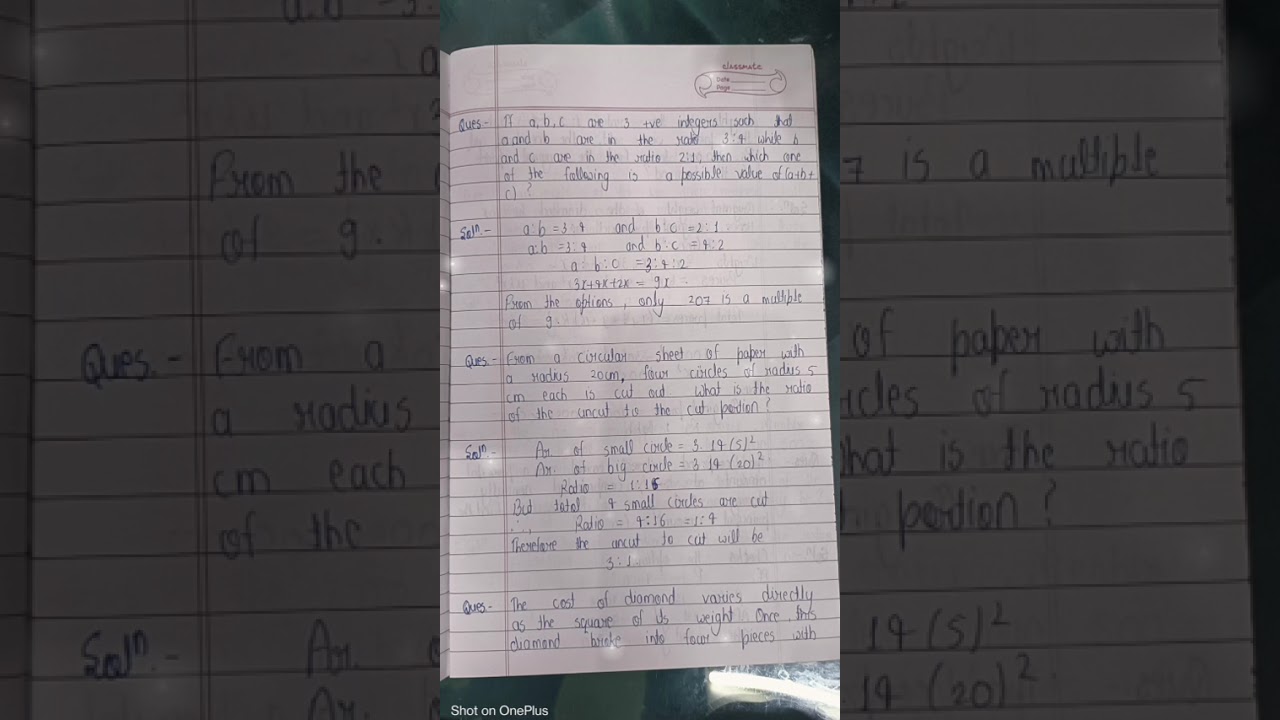 classmate
Date
Page
Ques - If a, b, c are 3 +ve integers such that
a and b are in the ratio 3:4 while b
and c are in the ratio 2:1, then which one
of the following is a possible value of (a+b+
c) ?
Solⁿ.- a:b = 3:4 and b:c = 2:1
a:b = 3:4 and b:c = 4:2
a b:c = 3:4:2
3x+4x+2x = 9x
From the options, only 207 is a multiple
of 9.
Ques.- From a circular sheet of paper with
a radius 20cm, four circles of radius 5
cm each is cut out what is the ratio
of the uncut to the cut portion?
Solⁿ.- Ar. of small circle = 3.14 (5)²
Ar. of big circle = 3.14 (20)²
Ratio = 1:16
But total 4 small circles are cut
∴, Ratio = 4:16 = 1:4
Therefore the uncut to cut will be
3:1.
Ques.- The cost of diamond varies directly
as the square of its weight Once, this
diamond broke into four pieces with
Shot on OnePlus